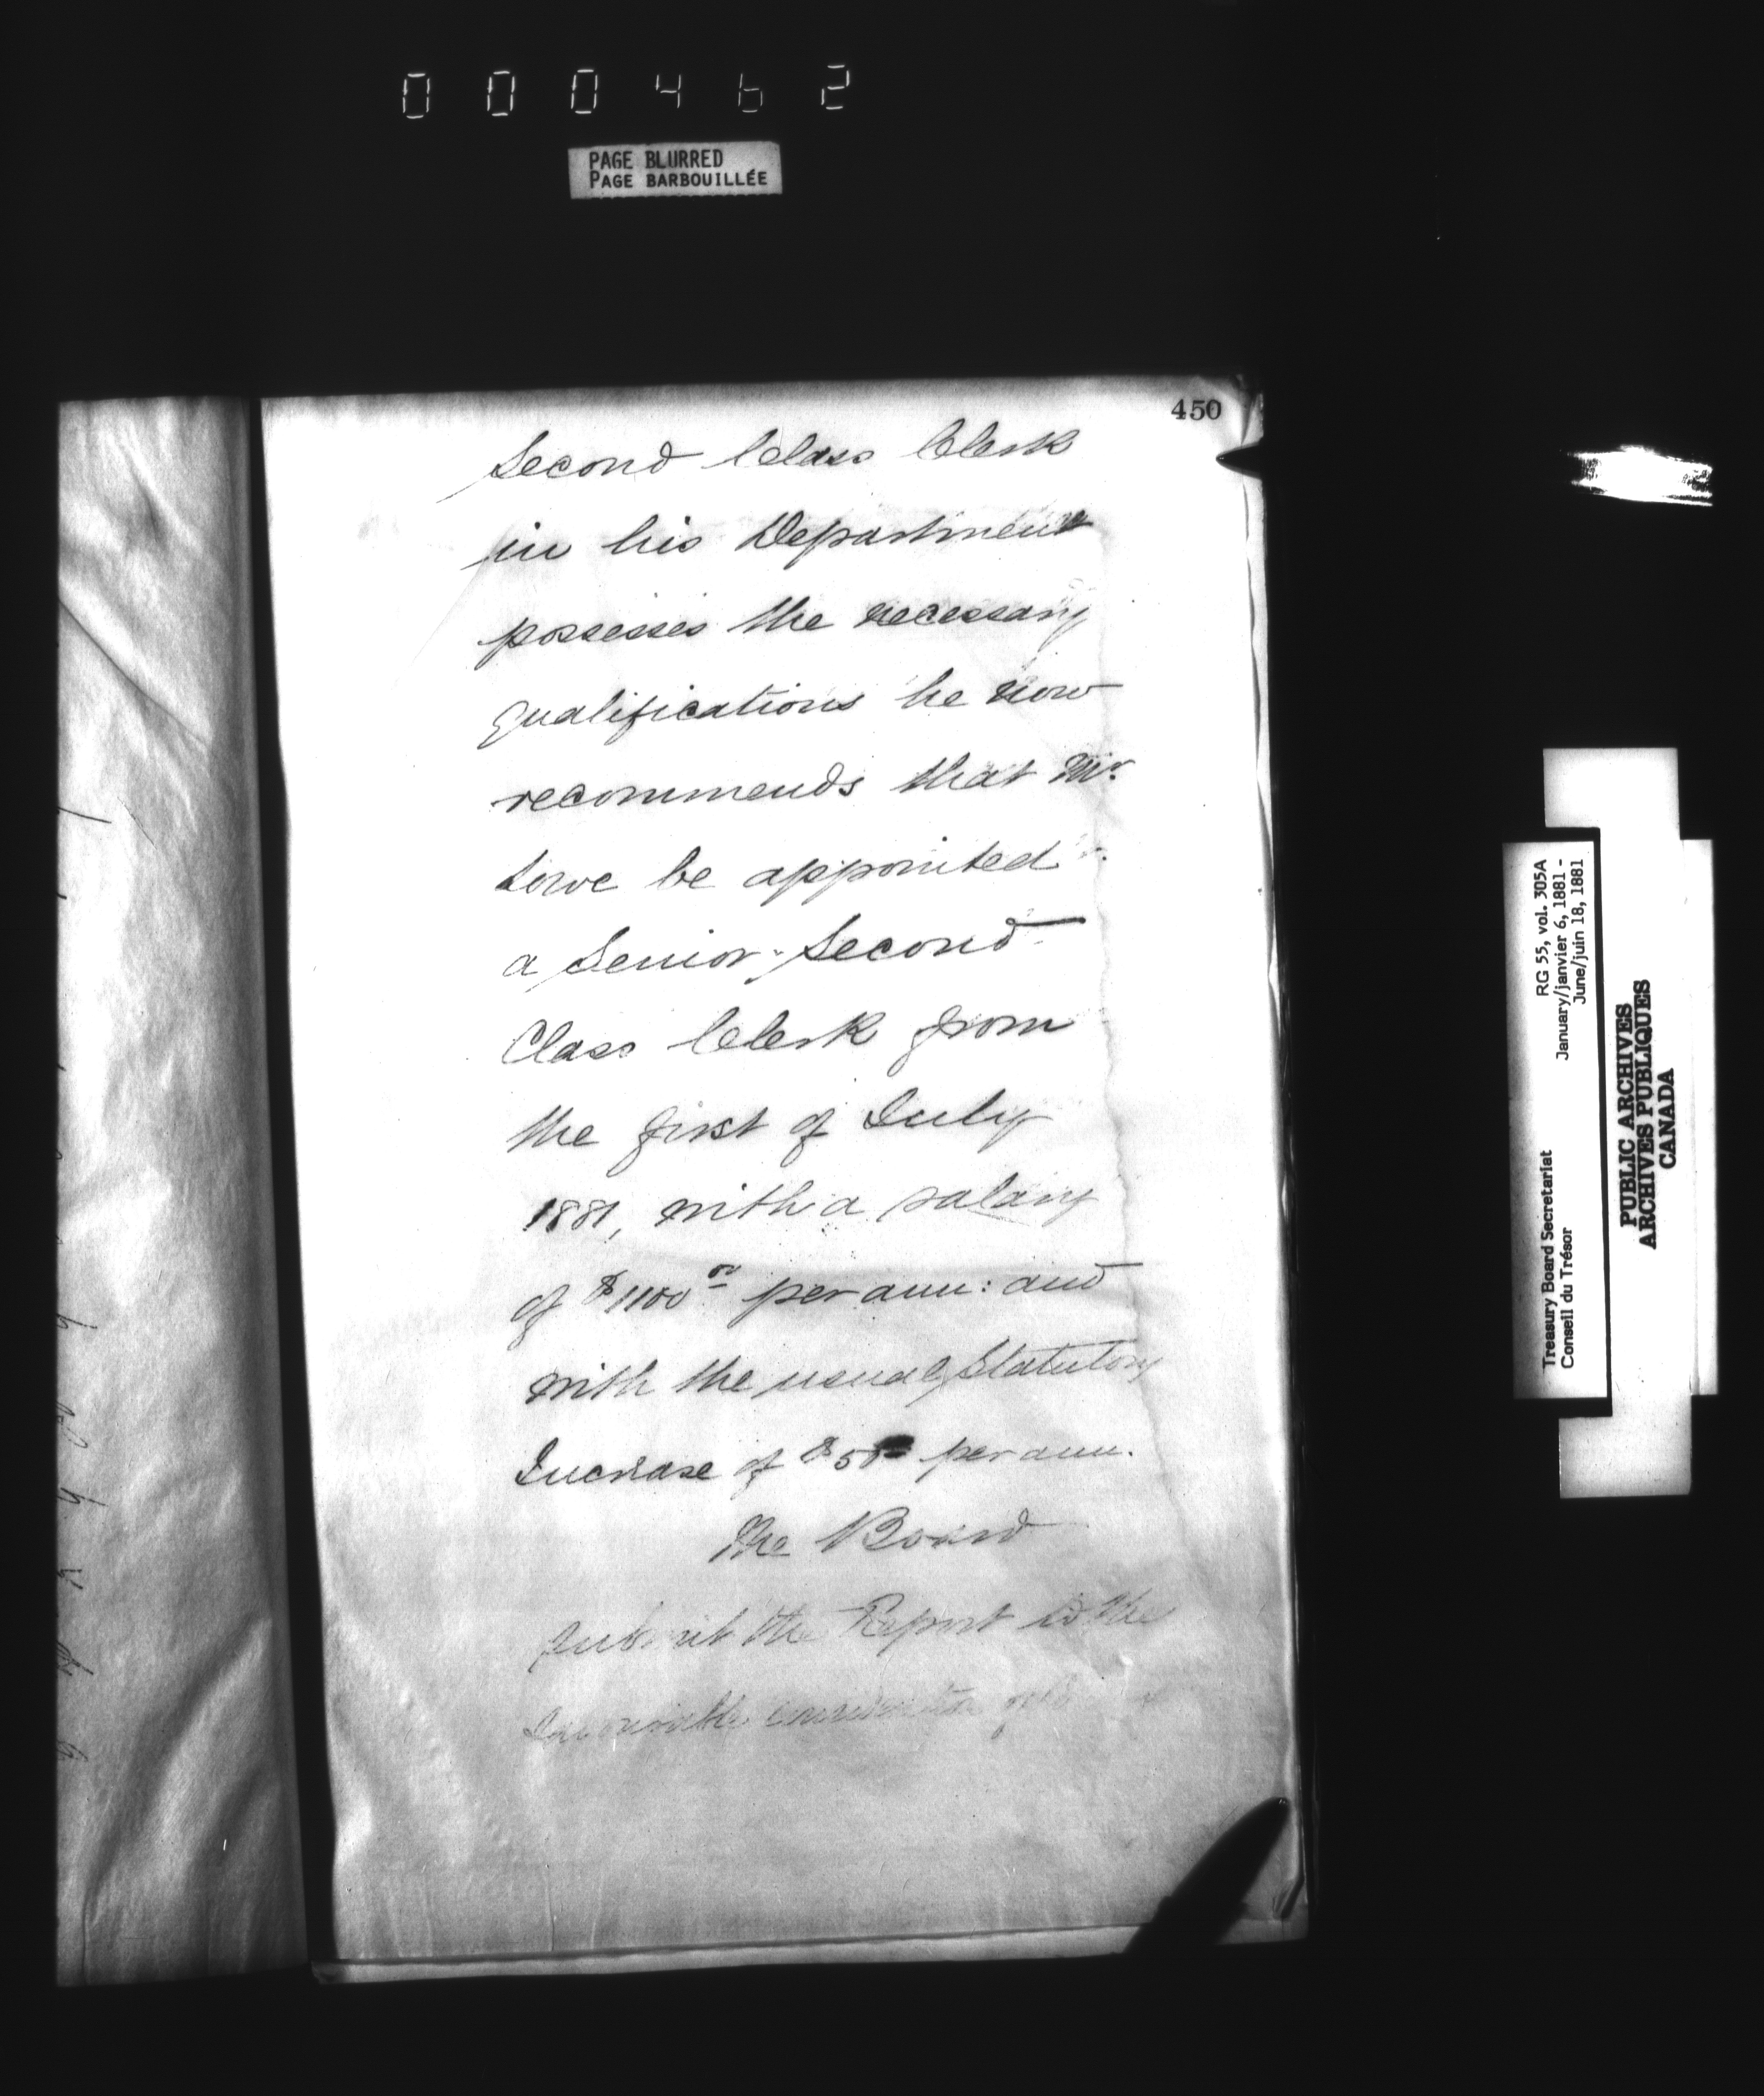 000462
PAGE BLURRED
PAGE BARBOUILLÉE
450
Second Class Clerk
in his Department
possesses the necessary
qualifications he now
recommends that Mr.
Lowe be appointed
a Senior Second
Class Clerk from
the first of July
1881, with a salary
of $1100 00 per ann: and
with the usual Statutory
Increase of $50 per ann.
The Board
submit the Report to the
favourable consideration of
Treasury Board Secretariat RG 55, vol. 305A
Conseil du Trésor January/janvier 6, 1881 -
June/juin 18, 1881
PUBLIC ARCHIVES
ARCHIVES PUBLIQUES
CANADA